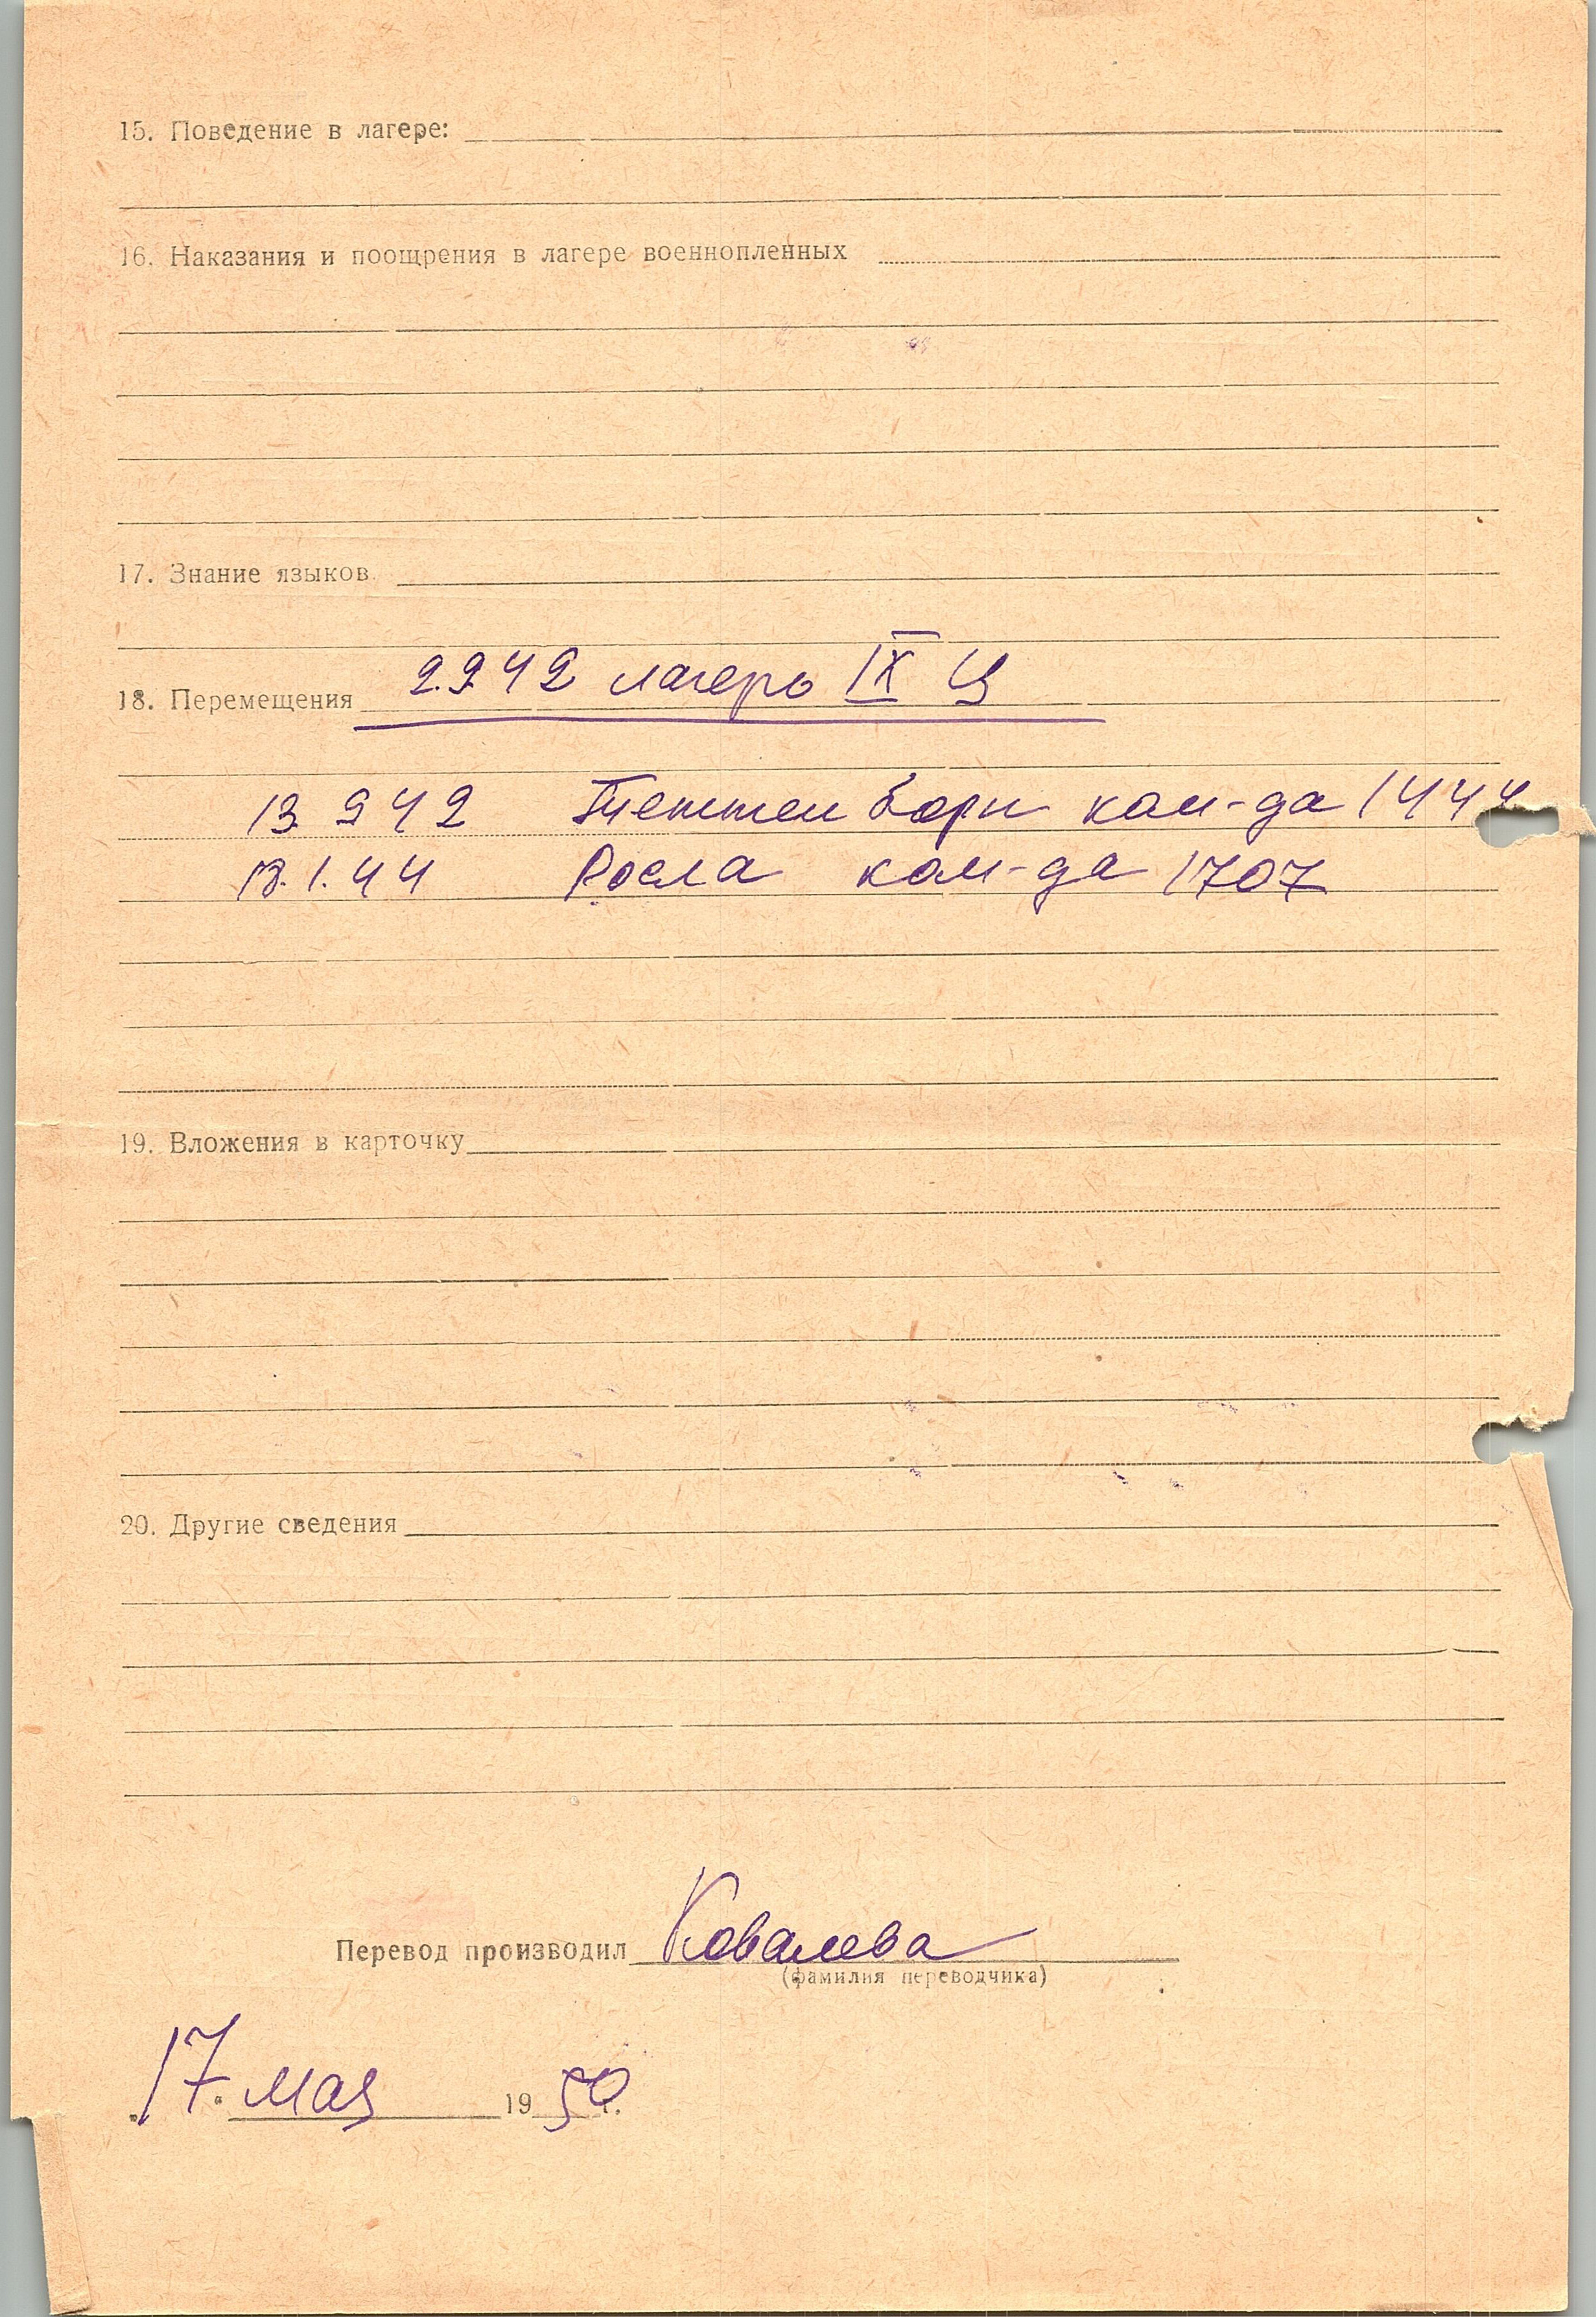 15. Поведение в лагере:
16. Наказания и поощрения в лагере военнопленных
17. Знание языков
18. Перемещения 2.9.42 лагерь IX Ц
13.9.42 Теттенборн ком-да 1444
13.1.44 Росла ком-да 1707
19. Вложения в карточку
20. Другие сведения
Перевод производил Ковалева
(фамилия переводчика)
„17“ мая 1950 г.